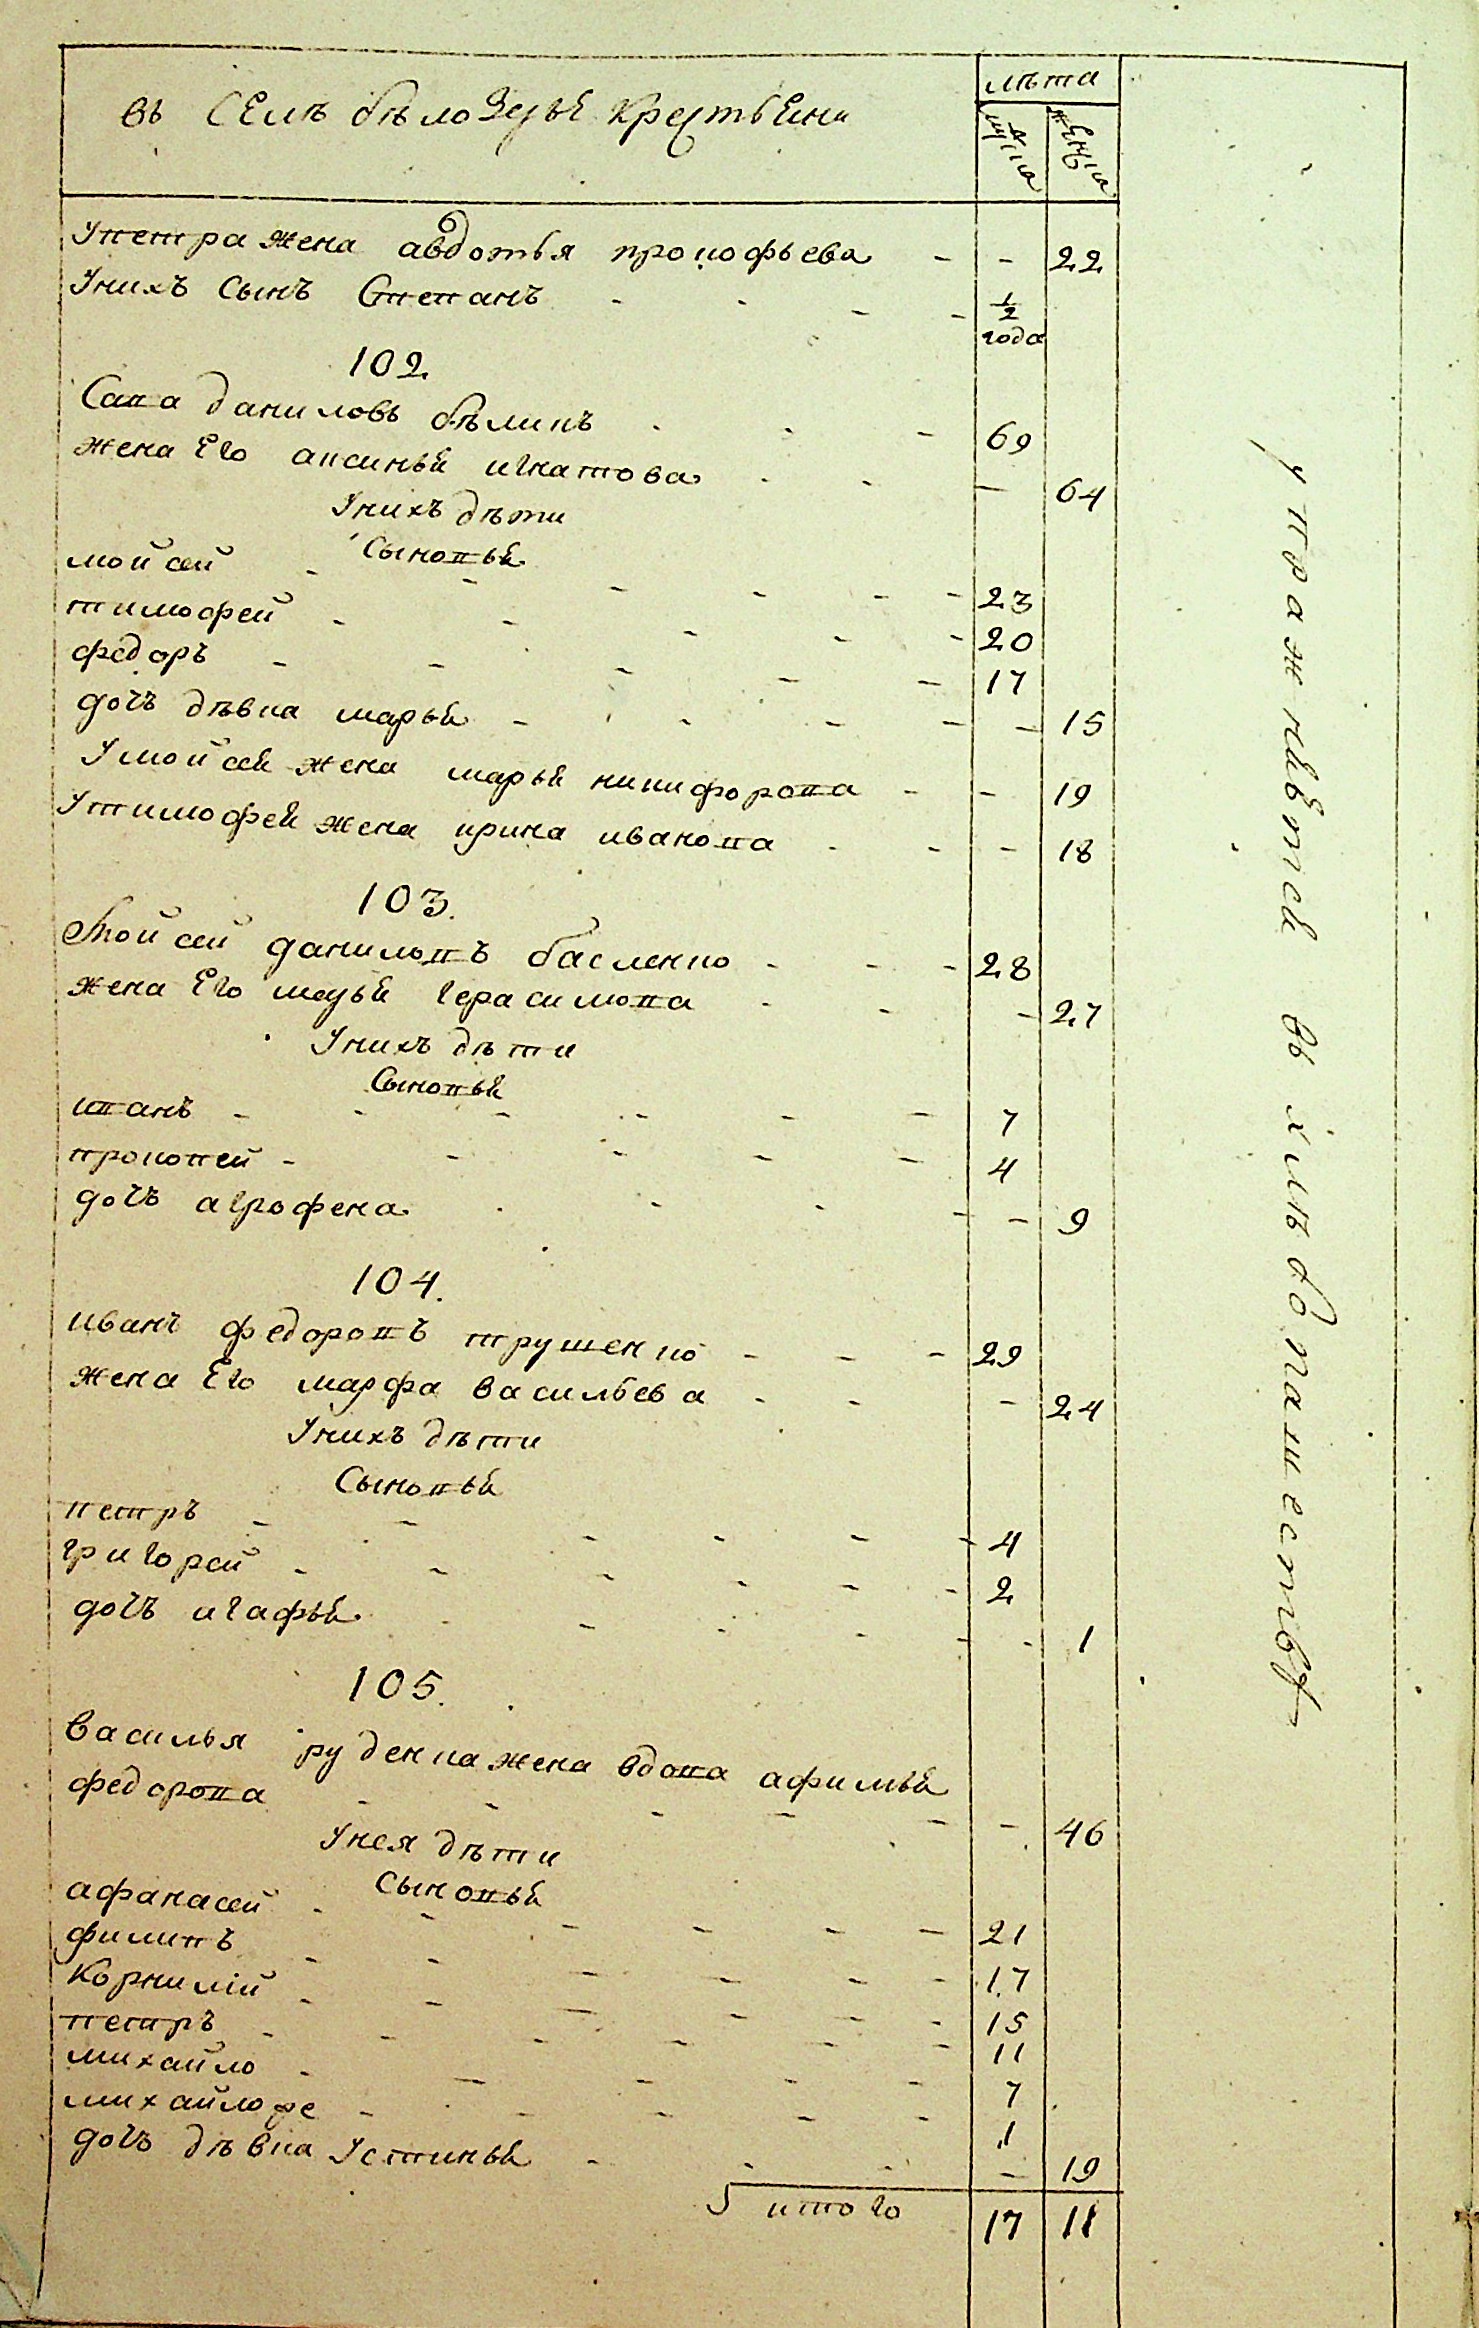 въ селѣ бѣлозерье крестьяни
лѣта
мужска
женска
У петра жена авдотья прокофьева - - 22
У нихъ сынъ Степанъ - - - - 1/2
года
102.
Сава даниловъ бѣликъ - - - 69
жена Его аксинья игнатова - - - 64
У нихъ дѣти
Сыновья
мойсей - - - - - - 23
тимофей - - - - - 20
федоръ - - - - - 17
дочъ дѣвка марья - - - - - - 15
У мойсея жена марья никифорова - - 19
У тимофея жена ирина иванова - - - 18
103.
Мойсей даниловъ басленко - - - 28
жена Его марья герасимова - - - 27
У нихъ дѣти
Сыновья
иванъ - - - - - - 7
прокопей - - - - - 4
дочъ агрофена - - - - - 9
104.
иванъ федоровъ трушенко - - - 29
жена Его марфа васильева - - - 24
У нихъ дѣти
Сыновья
петръ - - - - - - 4
григорей - - - - - - 2
дочъ агафья - - - - - - 1
105.
василья руденка жена вдова афимья
федорова - - - - - - 46
У нея дѣти
Сыновья
афанасей - - - - - - 21
филипъ - - - - - - 17
Корнилій - - - - - - 15
петръ - - - - - - 11
михайло - - - - - 7
михайло же - - - - - 1
дочъ дѣвка Устинья - - - - 19
итого 17 11
упражняются въ хлѣбопашествѣ